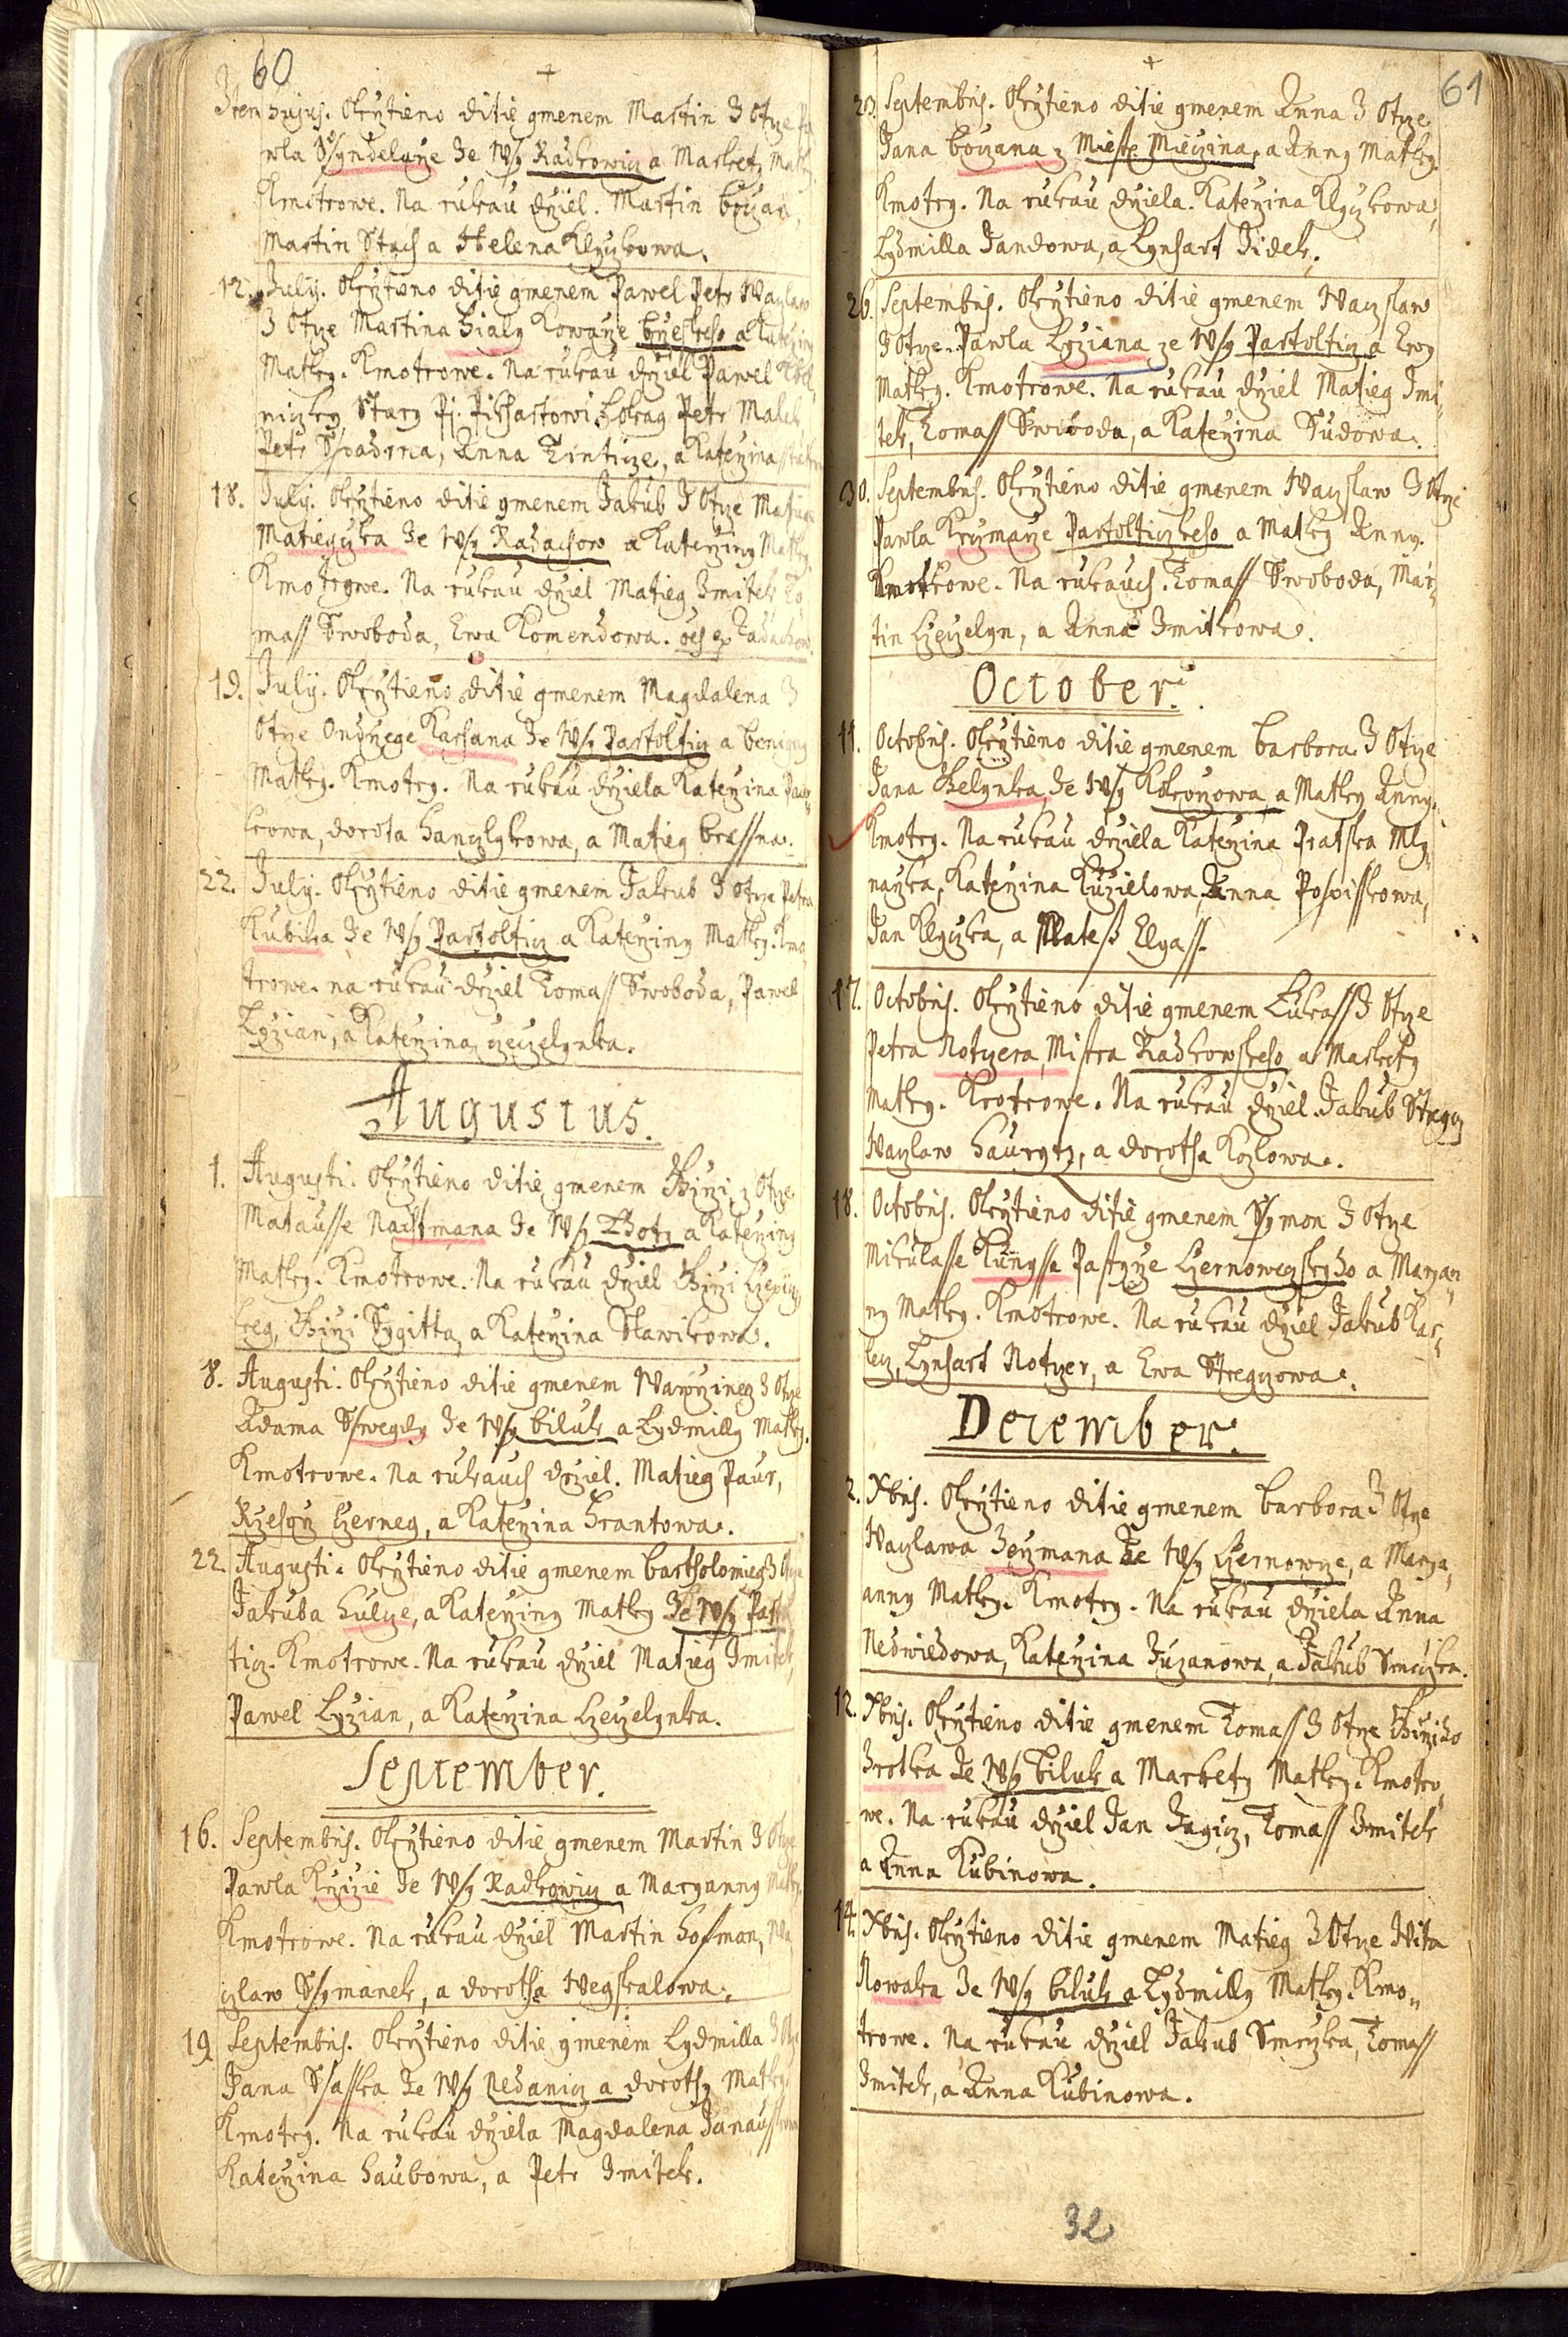 60
Item hujus. Okrztieno ditie gmenem Martin Z Otcze Pa
wla Ssyndelarze Ze Wsy Radkowicz a Markety Matky
Kmotrowe. Na rukau drziel. Martin bouzan,
Martin Stach a Helena Klyczkowa.
12. July. Okrztieno ditie gmenem Pawel Petr Waczlaw
Z Otcze Martina Hialy Kowarze bucskeho a Katerziny
Matky. Kmotrowe. Na rukau drziel Pawel
niczky Stary Petr Malek
Petr Spadrna, Anna a Katerzina
18. July. Okrztieno ditie gmenem Jakub Z Otcze Matiege
Matiegczka Ze Wsy Radachow a Katerziny Matky.
Kmotrowe. Na rukau drziel Matieg Zmitek To
mass Swoboda, Ewa Komendowa. oes ex Radachow
19. July. Okrztieno ditie gmenem Magdalena Z
Otcze Ondrzege Karhana Ze Wsy Pastolticz a benigny
Matky. Kmotry. Na rukau drziela Katerzina
krowa, dorota Hanzlykowa, a Matieg brassna.
22. July. Okrztieno ditie gmenem Jakub Z Otcze Petra
Kubika Ze Wsy Pastolticz a Katerziny Matky. Kmo
trowe. na rukau drziel Tomass Swoboda, Pawel
Lyzian, a Katerzina czeczelynka.
Augustus.
1. Augusti. Okrztieno ditie gmenem Girzi, z Otcze
Matausse Nachtmana Ze Wsy Lhoty a Katerziny
Matky. Kmotrowe. Na rukau drziel Girzi
keg, Girzi Sygitta, a Katerzina Slawikowa.
8. Augusti. Okrztieno ditie gmenem Wawrzinecz Z Otcze
Adama Sswegdy Ze Wsy biluk a Lydmilly Matky.
Kmotrowe. Na rukauch drziel. Matieg Paur,
Rzehorz Czerney, a Katerzina Hrantowa.
22. Augusti. Okrztieno ditie gmenem bartholomieg Z Otcze
Jakuba Hulye, a Katerziny Matky Ze Wsy Pastol
ticz. Kmotrowe. Na rukau drziel Matieg Zmitek,
Pawel Lyzian, a Katerzina Czeczelynka.
September.
16. Septembris. Okrztieno ditie gmenem Martin Z Otcze
Pawla Krzizie Ze Wsy Radkowicz a Maryanny Matky.
Kmotrowe. Na rukau drziel Martin Hofman, Wa
czlaw Ssymanek, a dorotha Wegskalowa.
19 Septembris. Okrztieno ditie gmenem Lydmilla Z Otcze
Jana Ssasska Ze Wsy Nedanicz a dorothy Matky.
Kmotry. Na rukau drziela Magdalena Janausskowa
Katerzina Haubowa, a Petr Zmitek.
61
23. Septembris. Okrztieno ditie gmenem Anna Z Otcze
Jana bouzana z Miesta Mieczina, a Anny Matky.
Kmotry. Na rukau drziela. Katerzina Klyczkowa,
Lydmilla Jandowa, a Lynhart Zidek.
26. Septembris. Okrztieno ditie gmenem Waczslaw
Z Otcze Pawla Lyziana ze Wsy Pastolticz a Ewy
Matky. Kmotrowe. Na rukau drziel Matieg Zmi
tek, Tomass Swoboda, a Katerzina Sudowa.
30. Septembris. Okrztieno ditie gmenem Waczslaw Z Otcze
Pawla Krczmarze Pastolticzkeho a Matky Anny.
Kmotrowe. Na rukauch. Tomass Swoboda, Mar
tin Czeczelyn, a Anna Zmitkowa.
October.
11. Octobris. Okrztieno ditie gmenem barbora Z Otcze
Jana Zelynka, Ze Wsy Kokorzowa, a Matky Anny.
Kmotry. Na rukau drziela Katerzina Pratska Mly
narzka, Katerzina Kuzielowa, Anna Pospisskowa,
Jan Klyczka, a Matess Elyass.
17. Octobris. Okrztieno ditie gmenem Lukass Z Otcze
Petra Notzera, Mistra Radkowskeho, a Markety
Matky. Krotrowe. Na rukau drziel. Jakub Stregcz
Waczlaw Haurytz, a dorotha Kozlowa.
18. Octobris. Okrztieno ditie gmenem Ssymon Z Otcze
Mikulasse Kungsse Pastyrze Czernoweczskyho a Maryan
ny Matky. Kmotrowe. Na rukau drziel Jakub Kar
lecz, Lynhart Notzer, a Ewa Stregczowa.
December.
2. Xbris. Okrztieno ditie gmenem barbora Z Otcze
Waczlawa Heyzmana Ze Wsy Czernowcze, a Marya
anny Matky. Kmotry. Na rukau drziela Anna
Nedwiedowa, Katerzina Zuzanowa, a Jakub Smrczka.
12. Xbris. Okrztieno ditie gmenem Tomass Z Otcze Girziho
Hrotka Ze Wsy biluk a Markety Matky. Kmotro
we. Na rukau drziel Jan Zagicz, Tomass Zmitek
a Anna Kubinowa.
14. Xbris. Okrztieno ditie gmenem Matieg Z Otcze Wita
Nowaka Ze Wsy biluk a Lydmilly Matky. Kmo
trowe. Na rukau drziel Jakub Smrczka, Tomass
Zmitek, a Anna Kubinowa.
32